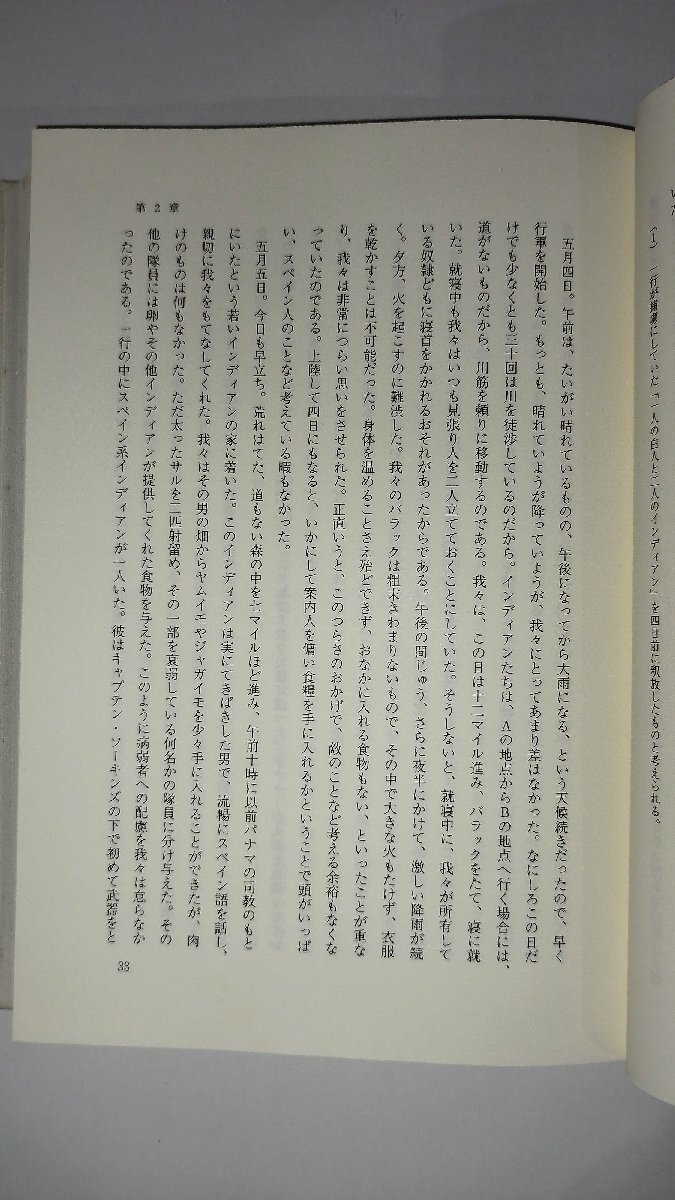 いた
(1) 一行が捕虜にしていた「一人の白人と二人のインディアン」を四日前に釈放したものと考えられる。
五月四日。午前は、たいがい晴れているものの、午後になってから大雨になる、という天候続きだったので、早く
行軍を開始した。もっとも、晴れていようが降っていようが、我々にとってあまり差はなかった。なにしろこの日だ
けでも少なくとも三十回は川を徒渉しているのだから。インディアンたちは、Aの地点からBの地点へ行く場合には、
道がないものだから、川筋を頼りに移動するのである。我々は、この日は十二マイル進み、バラックをたて、寝に就
いた。就寝中も我々はいつも見張り人を二人立てておくことにしていた。そうしないと、就寝中に、我々が所有して
いる奴隷どもに寝首をかかれるおそれがあったからである。午後の間じゅう、さらに夜半にかけて、激しい降雨が続
く。夕方、火を起こすのに難渋した。我々のバラックは粗末きわまりないもので、その中で大きな火もたけず、衣服
を乾かすことは不可能だった。身体を温めることさえ殆どできず、おなかに入れる食物もない、といったことが重な
り、我々は非常につらい思いをさせられた。正直いうと、このつらさのおかげで、敵のことなど考える余裕もなくな
っていたのである。上陸して四日にもなると、いかにして案内人を傭い食糧を手に入れるかということで頭がいっぱ
い、スペイン人のことなど考えている暇もなかった。
五月五日。今日も早立ち。荒れはてた、道もない森の中を七マイルほど進み、午前十時に以前パナマの司教のもと
にいたという若いインディアンの家に着いた。このインディアンは実にてきぱきした男で、流暢にスペイン語を話し、
親切に我々をもてなしてくれた。我々はその男の畑からヤムイエやジャガイモを少々手に入れることができたが、肉
けのものは何もなかった。ただ太ったサルを二匹射留め、その一部を衰弱している何名かの隊員に分け与えた。その
他の隊員には卵やその他インディアンが提供してくれた食物を与えた。このように病弱者への配慮を我々は怠らなか
ったのである。一行の中にスペイン系インディアンが一人いた。彼はキャプテン・ソーキンズの下で初めて武器をと
第2章
33